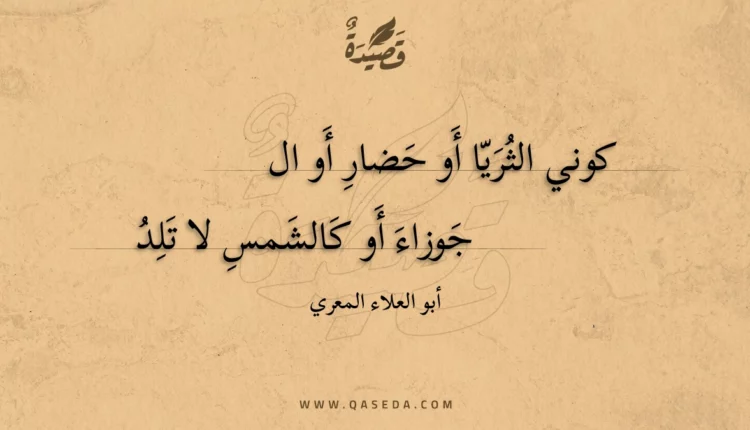 قَصِيدَةٌ
كوني الثُرَيّا أَو حَضارِ أَو ال
جَوزاءَ أَو كَالشَمسِ لا تَلِدُ
أبو العلاء المعري
WWW.QASEDA.COM